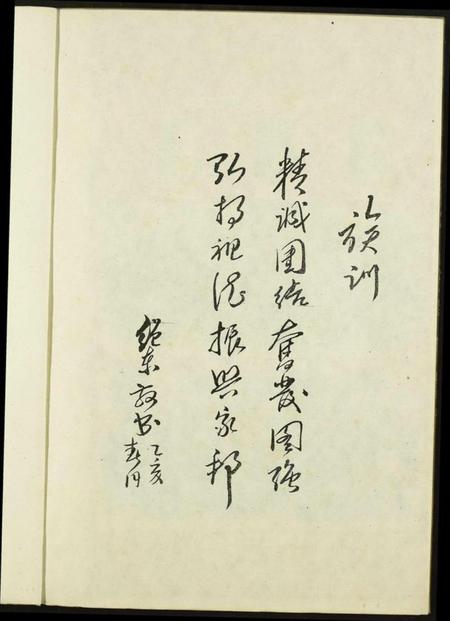 族训
精诚团结奋发图强
弘扬祖德振兴家邦
继东敬书
乙亥
春月